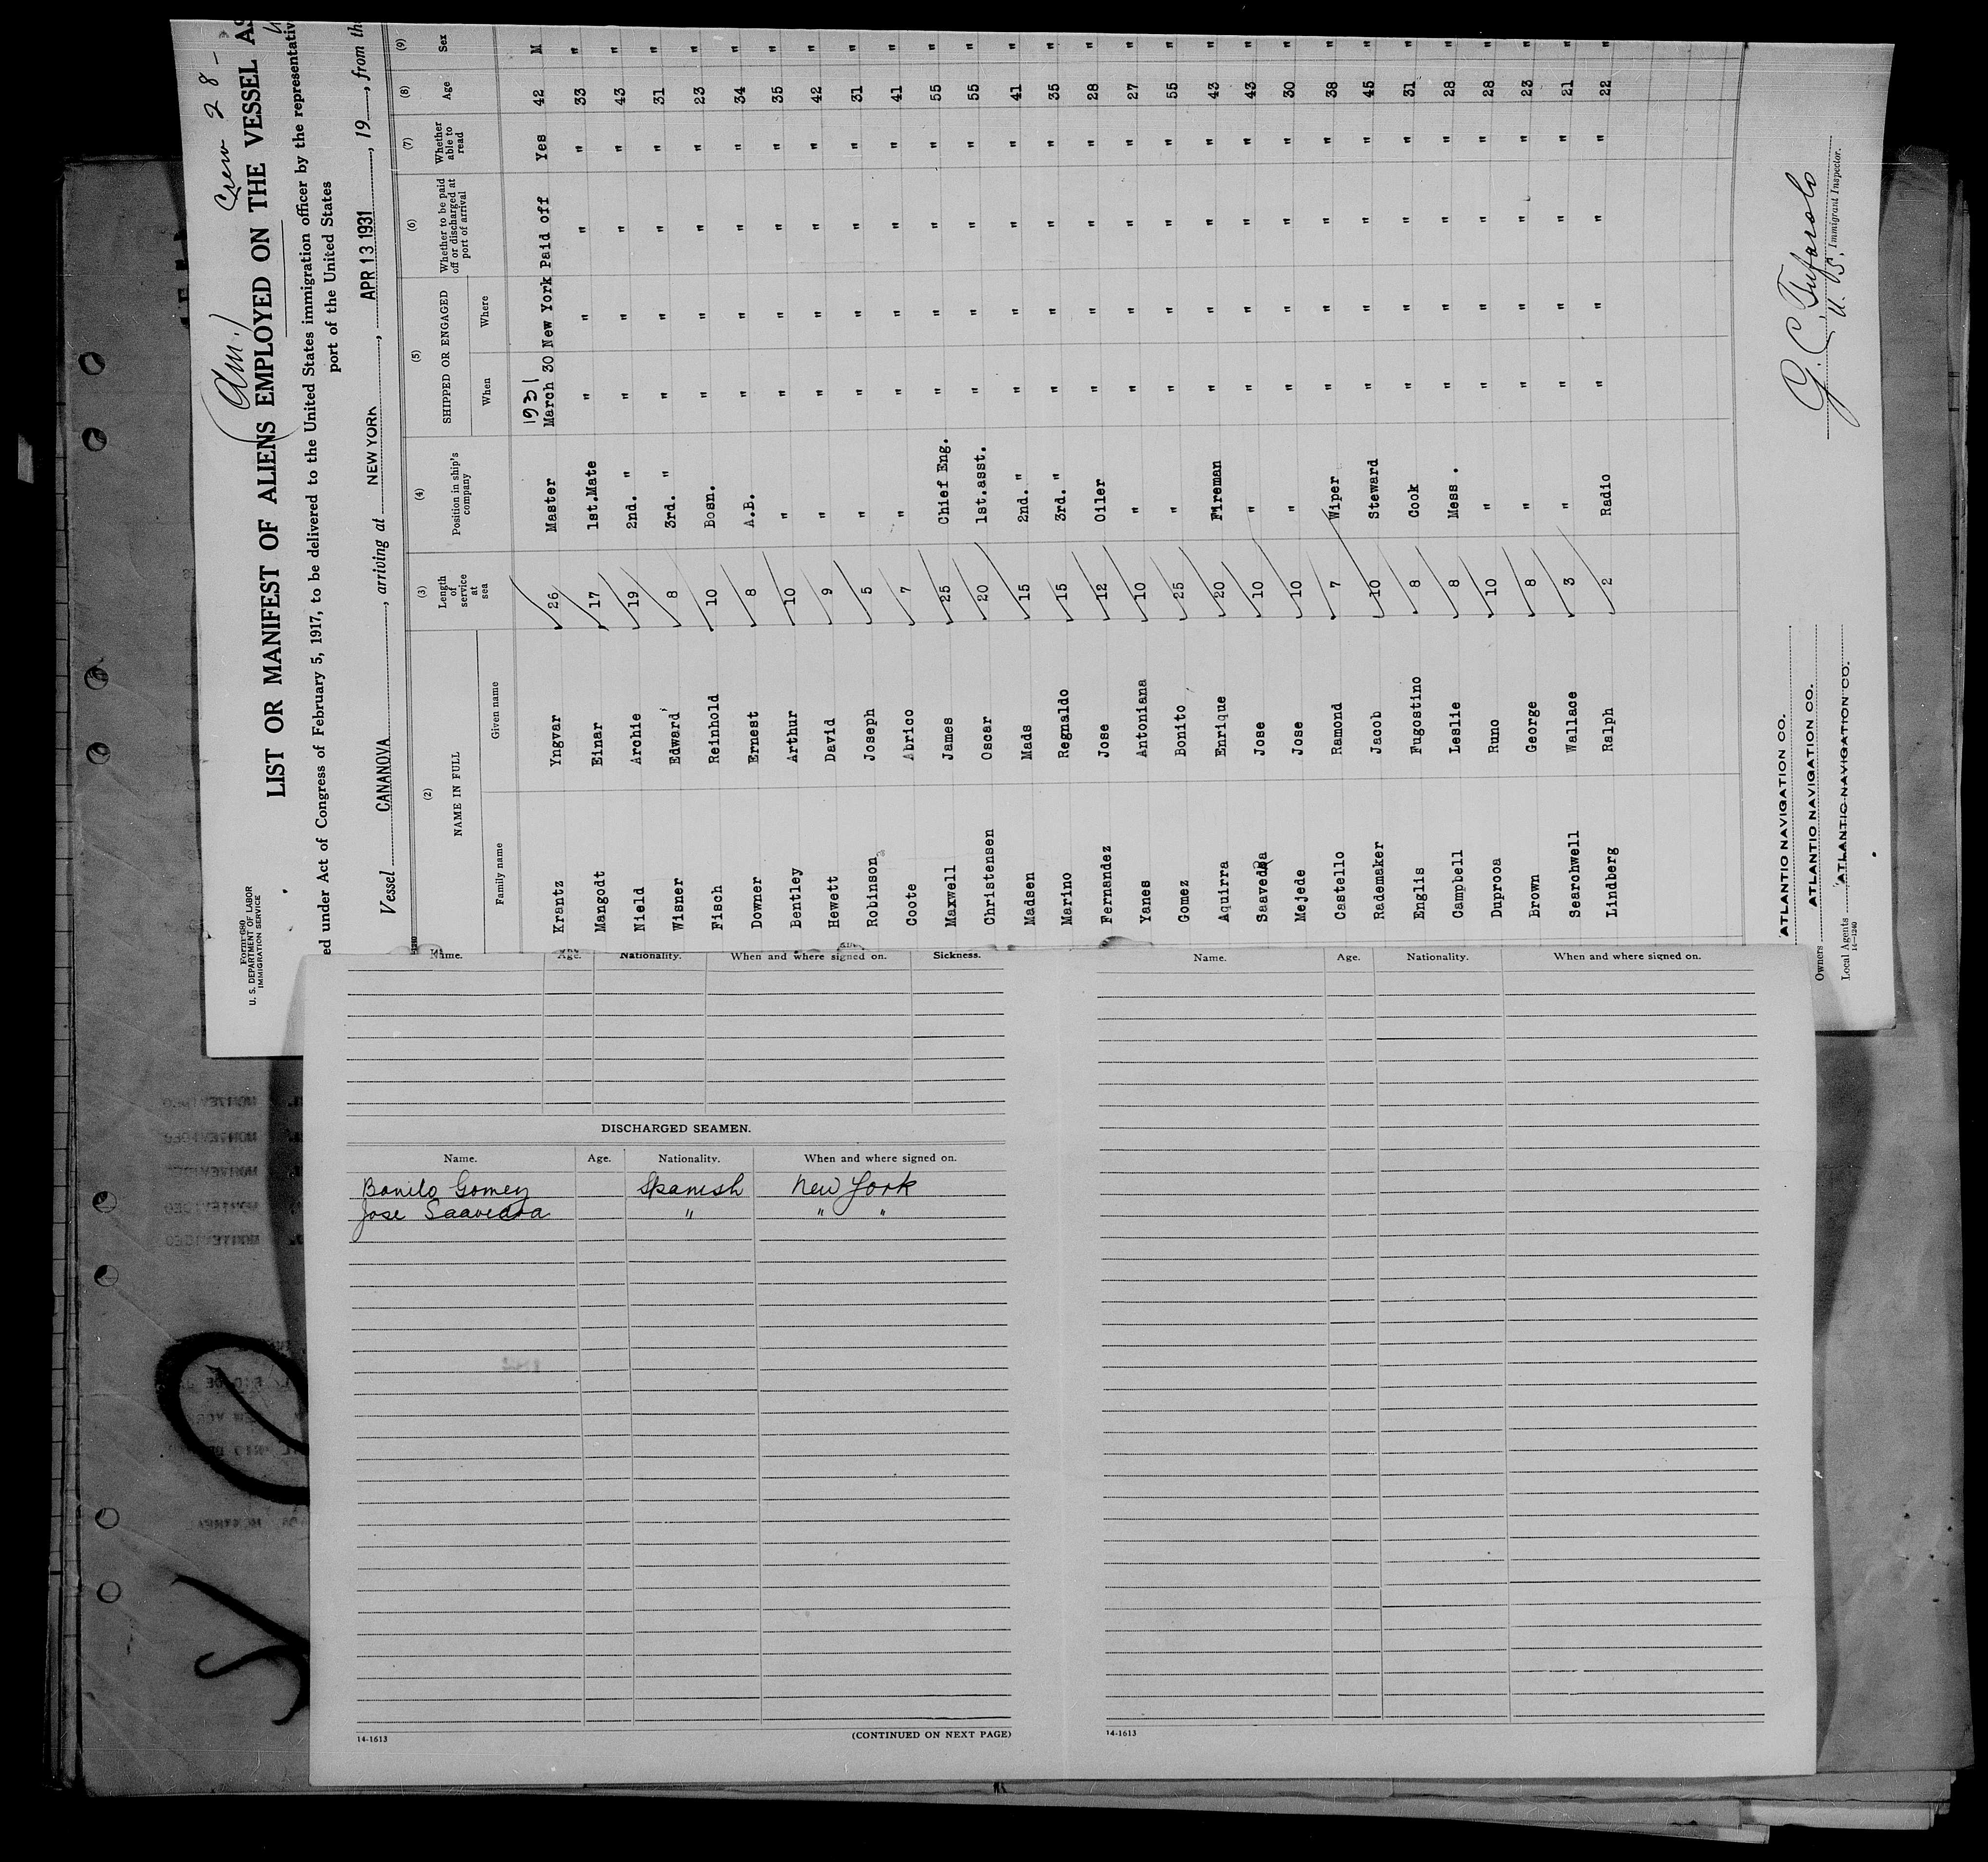 Form 680
U. S. DEPARTMENT OF LABOR
IMMIGRATION SERVICE
(Am.) Crew 28 -
LIST OR MANIFEST OF ALIENS EMPLOYED ON THE VESSEL AS
ed under Act of Congress of February 5, 1917, to be delivered to the United States immigration officer by the representativ
port of the United States
Vessel CANANOVA, arriving at NEW YORK, APR 13 1931, 19, from th
(2) (3) (4) (5) (6) (7) (8) (9)
NAME IN FULL Length of service at sea Position in ship's company SHIPPED OR ENGAGED Whether to be paid off or discharged at port of arrival Whether able to read Age Sex
Family name Given name When Where
1931
Krantz Yngvar 26 Master March 30 New York Paid off Yes 42 M
Mangodt Einar 17 1st.Mate " " " " 33 "
Nield Archie 19 2nd. " " " " " 43 "
Wisner Edward 8 3rd. " " " " " 31 "
Fisch Reinhold 10 Bosn. " " " " 23 "
Downer Ernest 8 A.B. " " " " 34 "
Bentley Arthur 10 " " " " " 35 "
Hewett David 9 " " " " " 42 "
Robinson Joseph 5 " " " " " 31 "
Coote Abrico 7 " " " " " 41 "
Maxwell James 25 Chief Eng. " " " " 55 "
Christensen Oscar 20 1st.asst. " " " " 55 "
Madsen Mads 15 2nd. " " " " " 41 "
Marino Regnaldo 15 3rd. " " " " " 35 "
Fernandez Jose 12 Oiler " " " " 28 "
Yanes Antoniana 10 " " " " " 27 "
Gomez Bonito 25 " " " " " 55 "
Aquirra Enrique 20 Fireman " " " " 43 "
Saavedra Jose 10 " " " " " 43 "
Mejede Jose 10 " " " " " 30 "
Castello Ramond 7 Wiper " " " " 38 "
Rademaker Jacob 10 Steward " " " " 45 "
Englis Fugostino 8 Cook " " " " 31 "
Campbell Leslie 8 Mess. " " " " 28 "
Duproos Runo 10 " " " " " 28 "
Brown George 8 " " " " " 23 "
Searchwell Wallace 3 " " " " " 21 "
Lindberg Ralph 2 Radio " " " " 22 "
ATLANTIC NAVIGATION CO.
Owners ATLANTIC NAVIGATION CO.
Local Agents ATLANTIC NAVIGATION CO.
14-1240
G. C. Tufarolo
U. S. Immigrant Inspector.
Name. Age. Nationality. When and where signed on. Sickness.
DISCHARGED SEAMEN.
Name. Age. Nationality. When and where signed on.
Bonito Gomez Spanish New York
Jose Saavedra " " "
14-1613 (CONTINUED ON NEXT PAGE)
Name. Age. Nationality. When and where signed on.
14-1613